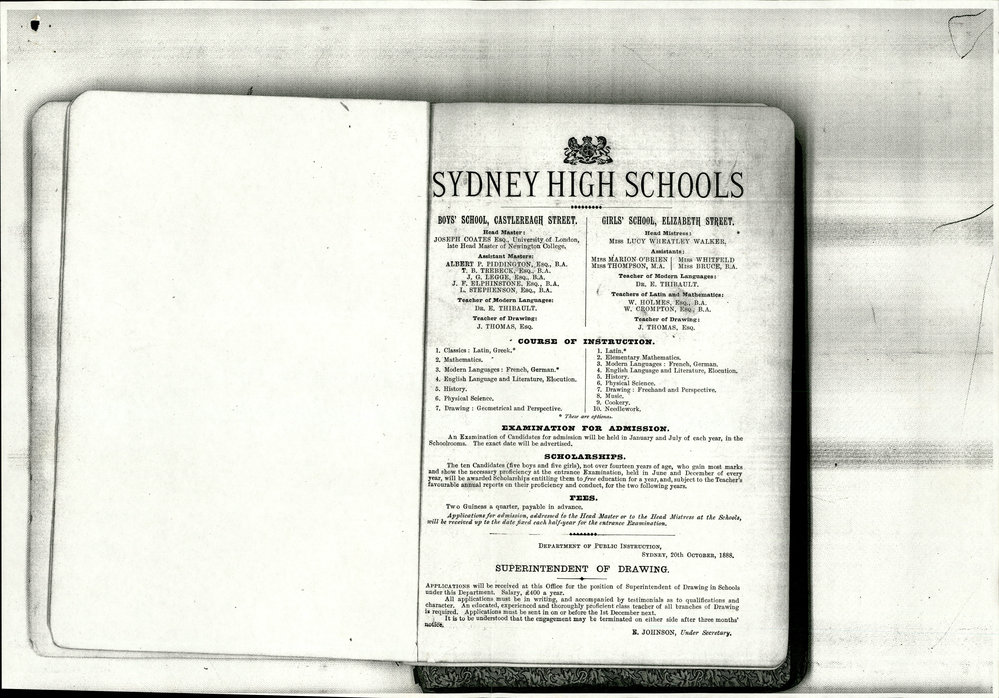 SYDNEY HIGH SCHOOLS
BOYS' SCHOOL, CASTLEREAGH STREET.
Head Master:
JOSEPH COATES Esq., University of London,
late Head Master of Newington College.
Assistant Masters:
ALBERT P. PIDDINGTON, Esq., B.A.
T. B. TREBECK, Esq., B.A.
J. G. LEGGE, Esq., B.A.
J. F. ELPHINSTONE, Esq., B.A.
L. STEPHENSON, Esq., B.A.
Teacher of Modern Languages:
DR. E. THIBAULT.
Teacher of Drawing:
J. THOMAS, Esq.
GIRLS' SCHOOL, ELIZABETH STREET.
Head Mistress:
MISS LUCY WHEATLEY WALKER.
Assistants:
MISS MARION O'BRIEN | MISS WHITFELD
MISS THOMPSON, M.A. | MISS BRUCE, B.A.
Teacher of Modern Languages:
DR. E. THIBAULT.
Teachers of Latin and Mathematics:
W. HOLMES, Esq., B.A.
W. CROMPTON, Esq., B.A.
Teacher of Drawing:
J. THOMAS, Esq.
COURSE OF INSTRUCTION.
1. Classics: Latin, Greek.*
2. Mathematics.
3. Modern Languages: French, German.*
4. English Language and Literature, Elocution.
5. History.
6. Physical Science.
7. Drawing: Geometrical and Perspective.
1. Latin.*
2. Elementary Mathematics.
3. Modern Languages: French, German.
4. English Language and Literature, Elocution.
5. History.
6. Physical Science.
7. Drawing: Freehand and Perspective.
8. Music.
9. Cookery.
10. Needlework.
* These are optional.
EXAMINATION FOR ADMISSION.
An Examination of Candidates for admission will be held in January and July of each year, in the
Schoolrooms. The exact date will be advertised.
SCHOLARSHIPS.
The ten Candidates (five boys and five girls), not over fourteen years of age, who gain most marks
and show the necessary proficiency at the entrance Examination, held in June and December of every
year, will be awarded Scholarships entitling them to free education for a year, and, subject to the Teacher's
favourable annual reports on their proficiency and conduct, for the two following years.
FEES.
Two Guineas a quarter, payable in advance.
Applications for admission, addressed to the Head Master or to the Head Mistress at the Schools,
will be received up to the date fixed each half-year for the entrance Examination.
DEPARTMENT OF PUBLIC INSTRUCTION,
SYDNEY, 20th OCTOBER, 1888.
SUPERINTENDENT OF DRAWING.
APPLICATIONS will be received at this Office for the position of Superintendent of Drawing in Schools
under this Department. Salary, £400 a year.
All applications must be in writing, and accompanied by testimonials as to qualifications and
character. An educated, experienced and thoroughly proficient class teacher of all branches of Drawing
is required. Applications must be sent in on or before the 1st December next.
It is to be understood that the engagement may be terminated on either side after three months'
notice.
E. JOHNSON, Under Secretary.